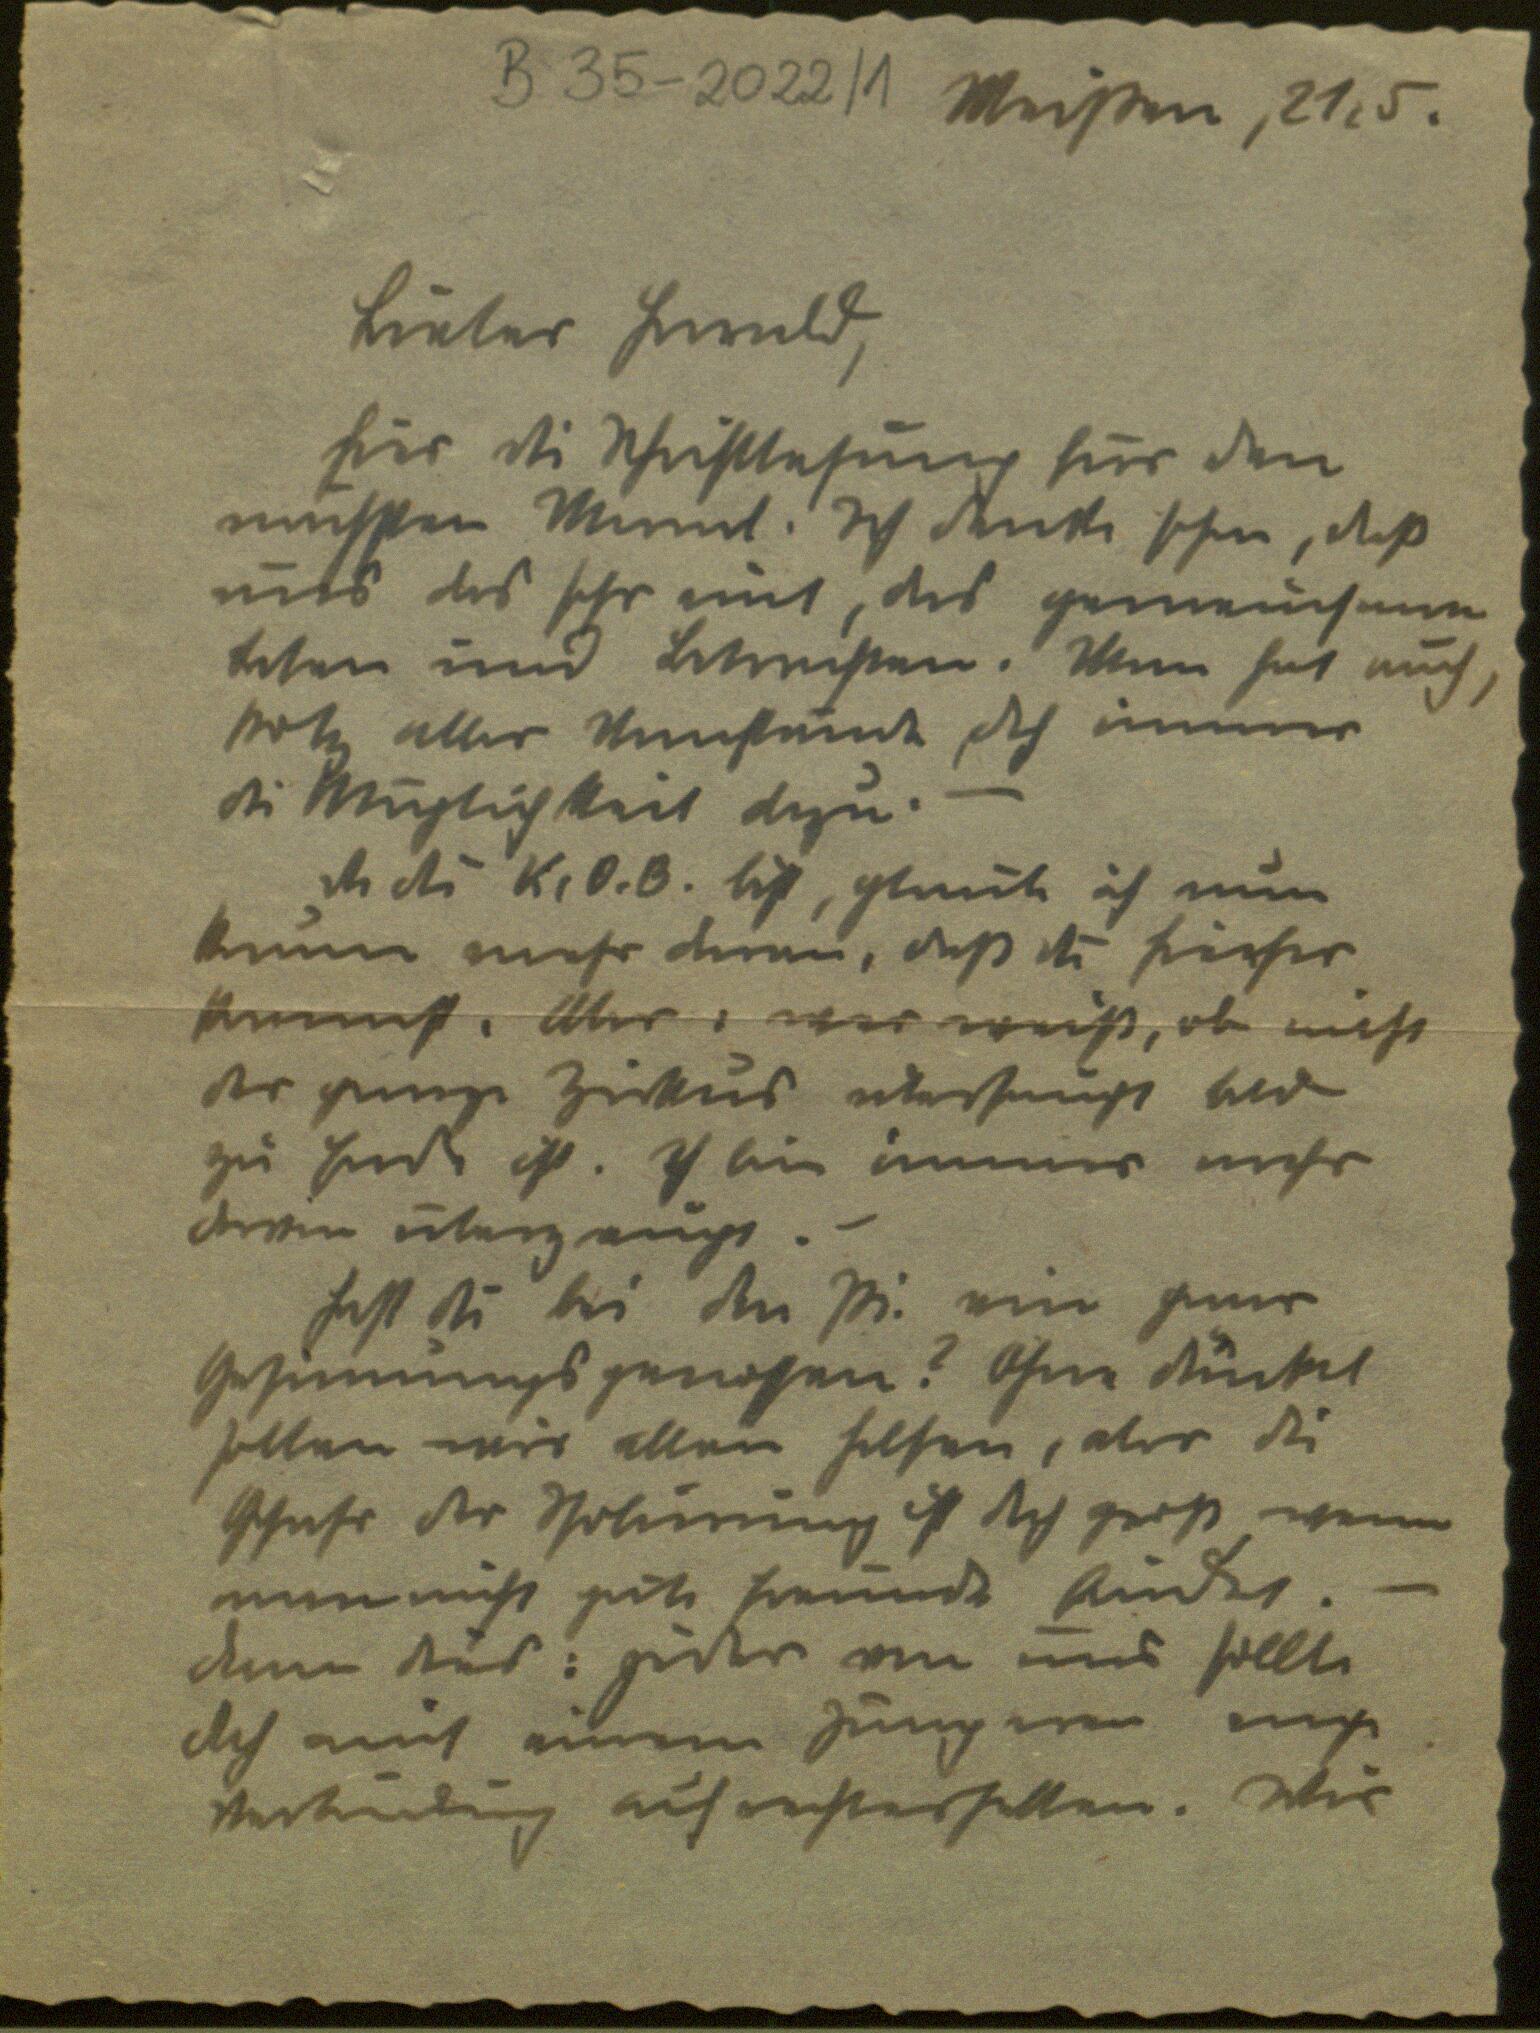 B 35-2022/1
Meißen, 21.5.
Lieber Harald,
hier die Schriftlesung für den
nächsten Monat. Ich denke schon, daß
uns das sehr eint, das gemeinsame
Beten und Betrachten. Man hat auch,
trotz aller Umstände doch immer
die Möglichkeit dazu. —
Da du K.O.B. bist, glaube ich nun
kaum mehr daran, daß du hierher
kommst. Aber: wer weiß, ob nicht
der ganze Zirkus überhaupt bald
zu Ende ist. Ich bin immer mehr
davon überzeugt. —
Hast du bei den Pi. ein paar
Gesinnungsgenossen? Ohne Dünkel
sollen wir allen helfen, aber die
Gefahr der Isolierung ist doch groß wenn
man nicht gute Freunde findet. —
Dann dies: jeder von uns sollte
doch mit einem Jüngeren enge
Verbindung aufrechterhalten. Wir